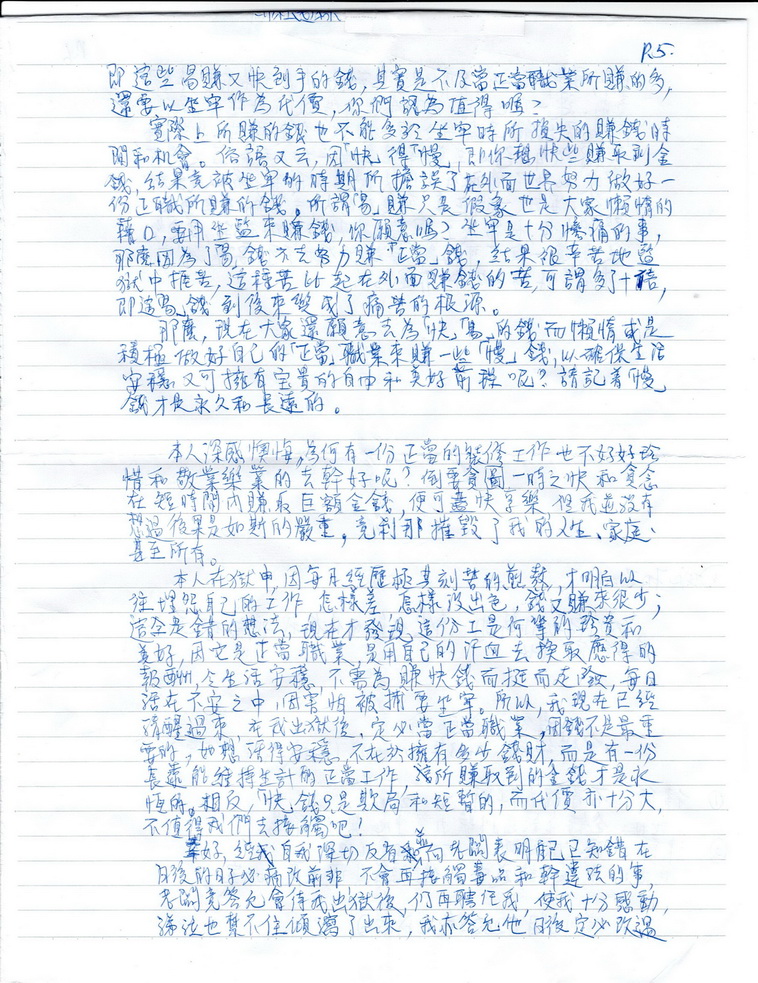 P.5.
即這些易賺又快到手的錢,其實是不及當正當職業所賺的多,
還要以坐牢作為代價,你們認為值得嗎?
實際上所賺的錢也不能多於坐牢時所損失的賺錢時
間和機會。俗語又云,因「快」得「慢」,即你想快些賺取到金
錢,結果竟被坐牢的時期所擔誤了在外面世界努力做好一
份正職所賺的錢。所謂「易」賺只是假象也是大家懶惰的
藉口,要用坐監來賺錢,你願意嗎?坐牢是十分慘痛的事,
那麼因為了「易」錢不去努力賺「正當」錢,結果很辛苦地監
獄中捱苦,這種苦比起在外面賺錢的苦,可謂多了十倍,
即這「易錢」到後來變成了痛苦的根源。
那麼,現在大家還願意去為「快」「易」的錢而懶惰或是
積極做好自己的「正當」職業來賺一些「慢」錢,以確保生活
安穩又可擁有宝貴的自由和美好前程呢?請記着「慢
錢」才是永久和長遠的。
本人深感懊悔,為何有一份正當的裝修工作也不好好珍
惜和敬業樂業的去幹好呢?倒要貪圖一時之快和貪念
在短時間內賺取巨額金錢,便可盡快享樂,但我並沒有
想過後果是如斯的嚴重,竟剎那摧毀了我的人生、家庭、
甚至所有。
本人在獄中,因每月經歷極其刻苦的煎熬,才明白以
往埋怨自己的工作怎樣差,怎樣沒出色,錢又賺來很少;
這全是錯的想法,現在才發現這份工是何等的珍貴和
美好,因它是正當職業,是用自己的汗血去換取應得的
報酬,令生活安穩,不需為賺快錢而挺而走險,每日
活在不安之中,因害怕被捕要坐牢。所以,我現在已經
清醒過來,在我出獄後,定必當正當職業,因錢不是最重
要的,如想活得安穩,不在於擁有多少錢財,而是有一份
長遠能維持生計的正當工作,所賺取到的金錢才是永
恆的。相反,「快」錢只是欺局和短暫的,而代價亦十分大,
不值得我們去接觸吧!
幸好,經我自我深切反省並向老闆表明自己已知錯在
日後的日子必痛改前非,不會再接觸毒品和幹違法的事,
老闆竟答允會待我出獄後,仍再聘任我,使我十分感動,
涕泣也禁不住傾瀉了出來,我亦答允他日後定必改過